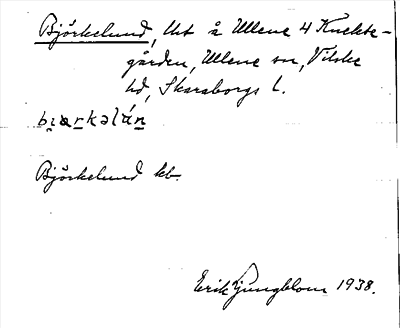 Björkelund, lht å Ullene 4 Knekte-
gården, Ullene sn, Vilske
hd, Skaraborgs l.
Björkelund kb.
Erik Ljungblom 1938.